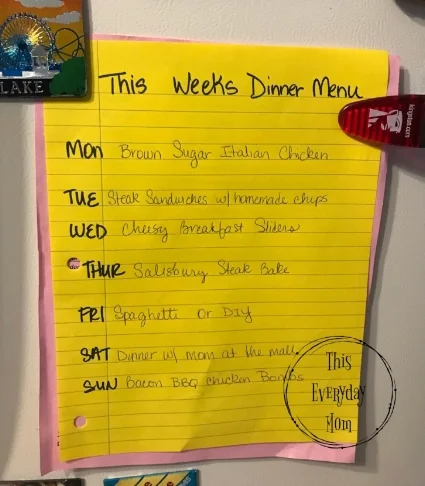 LAKE
This Weeks Dinner Menu
MON Brown Sugar Italian Chicken
TUE Steak Sandwiches w/ homemade chips
WED Cheesy Breakfast Sliders
THUR Salisbury Steak Bake
FRI Spaghetti or DIY
SAT Dinner w/ mom at the mall
SUN Bacon BBQ chicken Bombs
This
Everyday
Mom